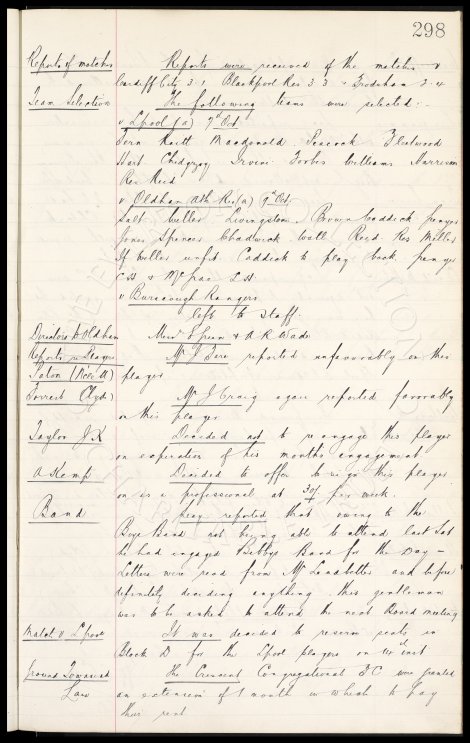 298
Reports of matches Reports were received of the matches v
Cardiff City 3-1 Blackpool Res 3-3 Frodsham 3-4
Team Selection The following teams were selected:-
v Lpool (a) 7th Oct
Fern Raitt Macdonald Peacock Fleetwood
Hart Chedgzoy Irvine Forbes Williams Harrison
Res Reid
v Oldham Ath Res (a) 9th Oct
Salt Livingstone Brown Caddick
Jones Spencer Chadwick Wall Reid Res Miller
If unfit Caddick to play back
C.H. &
v Burscough Rangers
left to Staff.
Directors to Oldham Messrs Green & A R Wade
Reports re Players Mr reported unfavourably on this
player
Forrest (Clyde) Mr J Craig again reported favorably
on this player
Taylor J.K Decided not to re engage this player
on expiration of his months engagement
A Kemp Decided to offer to re sign this player
on as a professional at 30/- per week.
Band Secy reported that owing to the
Boys Band not being able to attend last Sat
he had engaged Band for the Day -
Letters were read from Mr and before
definitely deciding anything this gentleman
was to be asked to attend the next Board meeting
Match v Lpool It was decided to reserve seats in
Block D for the Lpool players on inst
Ground The Crescent Congregational F C were granted
an extension of 1 month in which to pay
their rent